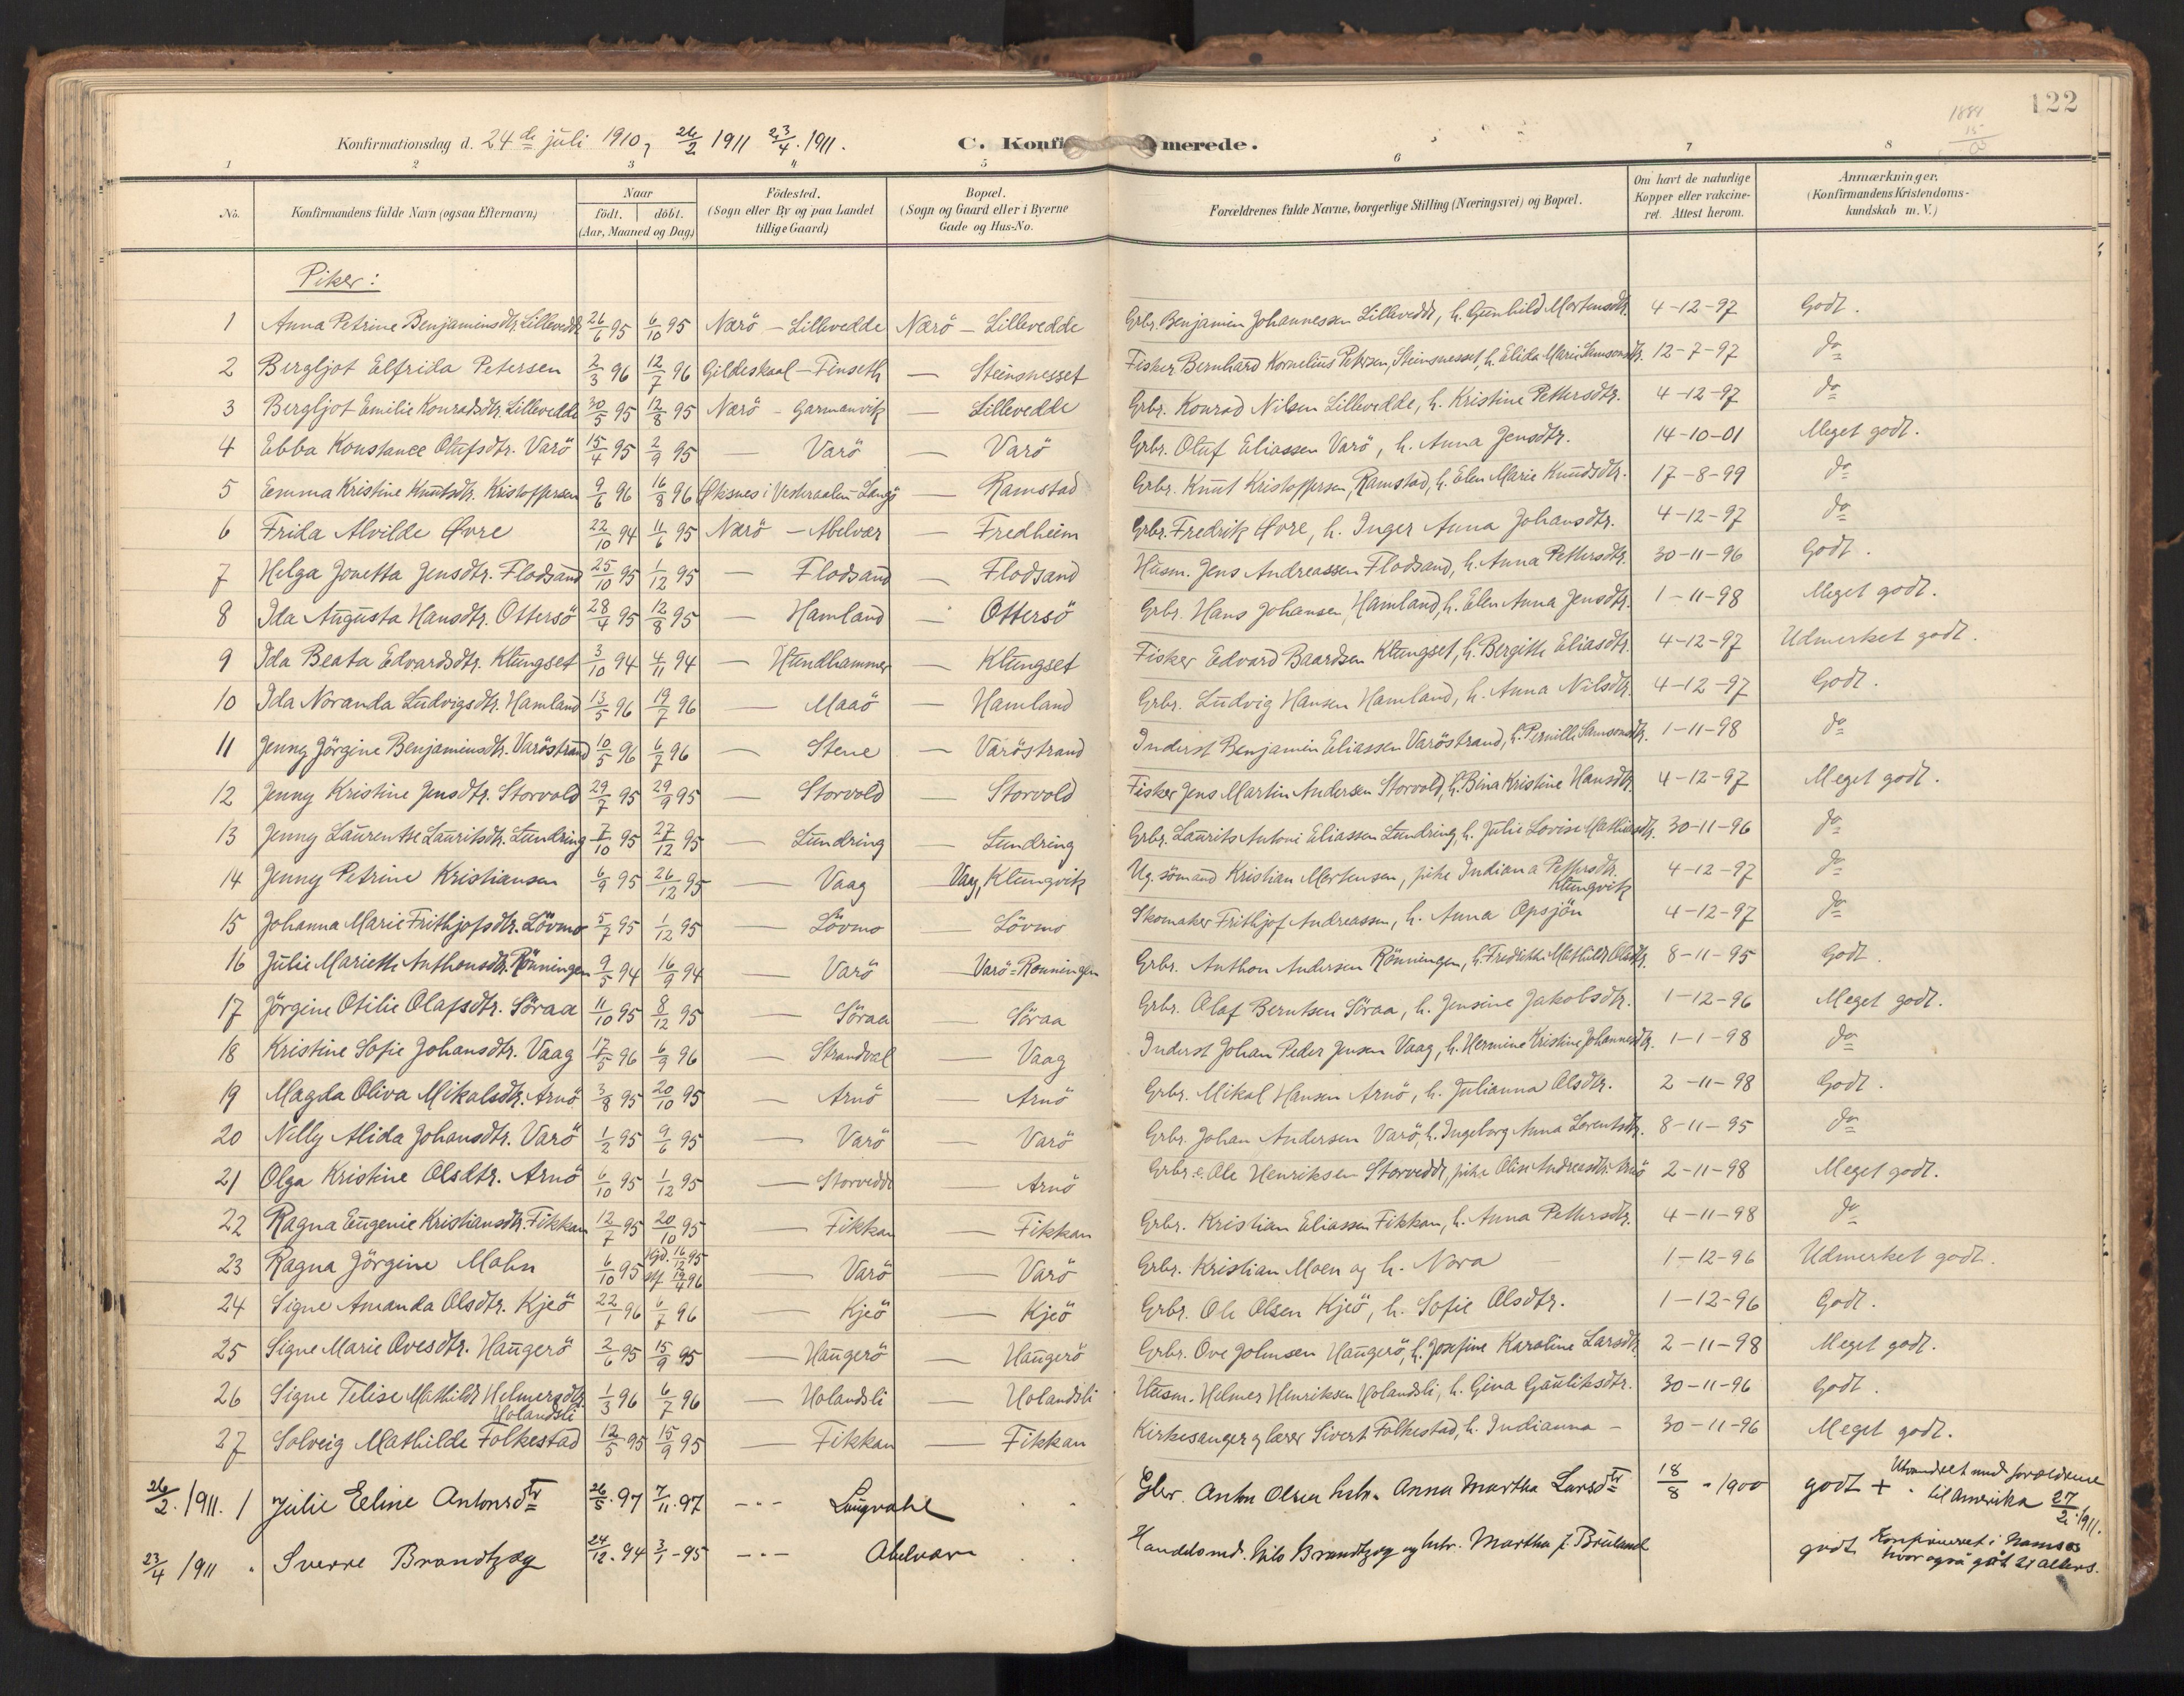 122
1888
15
Konfirmationsdag d. 24de juli 1910, 26/2 1911 23/4. 1911.
C. Konfirmerede.
1 2 3 4 5 6 7 8
No. Konfirmandens fulde Navn (ogsaa Efternavn) Naar født. døbt. (Aar, Maaned og Dag) Fødested. (Sogn eller By og paa Landet tillige Gaard) Bopæl. (Sogn og Gaard eller i Byerne Gade og Hus-No. Forældrenes fulde Navne, borgerlige Stilling (Næringsvei) og Bopæl. Om havt de naturlige Kopper eller vakcineret. Attest herom. Anmærkninger. (Konfirmandens Kristendomskundskab m. V.)
Piker:
1 Anna Petrine Benjaminsdtr. Lillevedde 26/6 95 6/10 95 Nærö - Lillevedde Nærö - Lillevedde Grbr. Benjamin Johannessen Lillevedde, h. Gunhild Martensdtr. 4-12-97 Godt.
2 Bergljot Elfrida Petersen 2/3 96 12/7 96 Gildeskaal - Finseth — Steinsnesset Fisker Bernhard Kornelius Petersen, Steinsnesset, h. Elida Marie Samsonsdtr. 12-7-97 do
3 Bergljot Emilie Konradsdtr. Lillevedde 30/5 95 12/8 95 Nærö - Garmanvik — Lillevedde Grbr. Konrad Nilsen Lillevedde, h. Kristine Pettersdtr. 4-12-97 do
4 Ebba Konstance Olufsdtr. Varö 15/4 95 2/9 95 — Varö — Varö Grbr. Oluf Eliassen Varö, h. Anna Jensdtr. 14-10-01 Meget godt.
5 Emma Kristine Knutsdtr. Kristoffersen 9/6 96 16/8 96 Øksnes i Vesteraalen - Langö — Ramstad Grbr. Knut Kristoffersen, Ramstad, h. Elen Marie Knudsdtr. 17-8-99 do
6 Frida Alvilde Øvre 22/10 94 11/6 95 Nærö - Abelvær — Fredheim Grbr. Fredrik Øvre, h. Inger Anna Johansdtr. 4-12-97 do
7 Helga Jonetta Jensdtr. Flodsand 25/10 95 1/12 95 — Flodsand — Flodsand Husm. Jens Andreassen Flodsand, h. Anna Pettersdtr. 30-11-96 Godt.
8 Ida Augusta Hansdtr. Ottersö 28/4 95 12/8 95 — Hamland — Ottersö Grbr. Hans Johansen Hamland, h. Elen Anna Jensdtr. 1-11-98 Meget godt.
9 Ida Beata Edvardsdtr. Klungset 3/10 94 4/11 94 — Hundhammer — Klungset Fisker Edvard Baardsen Klungset, h. Bergitte Eliasdtr. 4-12-97 Udmerket godt.
10 Ida Noranda Ludvigsdtr. Hamland 13/5 96 19/7 96 — Maaö — Hamland Grbr. Ludvig Hansen Hamland, h. Anna Nilsdtr. 4-12-97 Godt.
11 Jenny Jörgine Benjaminsdtr. Varöstrand 10/5 96 6/7 96 — Stene — Varöstrand Inderst Benjamin Eliassen Varöstrand, h. Pernille Samsonsdtr. 1-11-98 do
12 Jenny Kristine Jensdtr. Storvold 29/7 95 29/9 95 — Storvold — Storvold Fisker Jens Martin Andersen Storvold, h. Bina Kristine Hansdtr. 4-12-97 Meget godt.
13 Jenny Laurentse Lauritsdtr. Lundring 7/10 95 27/12 95 — Lundring — Lundring Grbr. Laurits Antoni Eliassen Lundring, h. Julie Lovise Mathiasdtr. 30-11-96 do
14 Jenny Petrine Kristiansen 6/9 95 26/12 95 — Vaag — Vaag, Klungvik Ug. sömand Kristian Mortensen, pike Indiana Pettersdtr. Klungvik 4-12-97 do
15 Johanna Marie Frithjofsdtr. Lövmo 5/7 95 1/12 95 — Lövmo — Lövmo Skomaker Frithjof Andreassen, h. Anna Opsjön 4-12-97 do
16 Julie Mariette Anthonsdtr. Rönningen 9/5 94 16/9 94 — Varö — Varö-Rönningen Grbr. Anthon Andersen Rönningen, h. Fredrikke Mathilde Olsdtr. 8-11-95 Godt.
17 Jörgine Otilie Olafsdtr. Söraa 11/10 95 8/12 95 — Söraa — Söraa Grbr. Olaf Berntsen Söraa, h. Jensine Jakobsdtr. 1-12-96 Meget godt.
18 Kristine Sofie Johansdtr. Vaag 17/5 96 6/9 96 — Strandval — Vaag Inderst Johan Peder Jensen Vaag, h. Hermine Kristine Johannesdtr. 1-1-98 do
19 Magda Oliva Mikalsdtr. Arnö 3/8 95 20/10 95 — Arnö — Arnö Grbr. Mikal Hansen Arnö, h. Julianna Olsdtr. 2-11-98 Godt.
20 Nelly Alida Johansdtr. Varö 1/2 95 9/6 95 — Varö — Varö Grbr. Johan Andersen Varö, h. Ingeborg Anna Lorentsdtr. 8-11-95 do
21 Olga Kristine Olsdtr. Arnö 6/10 95 1/12 95 — Storvedde — Arnö Grbr. e. Ole Henriksen Storvedde, pike Olise Andreasdtr. Arnö 2-11-98 Meget godt.
22 Ragna Eugenie Kristiansdtr. Fikkan 12/7 95 20/10 95 — Fikkan — Fikkan Grbr. Kristian Eliassen Fikkan, h. Anna Pettersdtr. 4-11-98 do
23 Ragna Jörgine Mohn 6/10 95 Hjd. 16/12 95 stf. 19/4 96 — Varö — Varö Grbr. Kristian Moen og h. Nora 1-12-96 Udmerket godt.
24 Signe Amanda Olsdtr. Kjeö 22/1 96 6/7 96 — Kjeö — Kjeö Grbr. Ole Olsen Kjeö, h. Sofie Olsdtr. 1-12-96 Godt.
25 Signe Marie Ovesdtr. Haugerö 2/6 95 15/9 95 — Haugerö — Haugerö Grbr. Ove Johnsen Haugerö, h. Josefine Karoline Larsdtr. 2-11-98 Meget godt.
26 Signe Telise Mathilde Helmersdtr. Holandsli 1/3 96 6/7 96 — Holandsli — Holandsli Husm. Helmer Henriksen Holandsli, h. Gina Gauliksdtr. 30-11-96 Godt.
27 Solveig Mathilde Folkestad 12/5 95 15/9 95 — Fikkan — Fikkan Kirkesanger og lærer Sivert Folkestad, h. Indianna - 30-11-96 Meget godt.
26/2. 1911. 1 Julie Eeline Antonsdtr 26/5. 97 7/11. 97 --- Langvale Gbr. Anton Olsen hstr. Anna Martha Larsdtr 18/8 - 1900 godt + Utvandret med forældrene til Amerika 27/2. 1911.
23/4 1911 Sverre Brandtzæg 24/12. 94 3/1 - 95 --- Abelvær Handelsmd. Nils Brandtzæg og hstr. Martha f. Bruland godt Konfirmeret i Namsos hvor også gåt til alters.